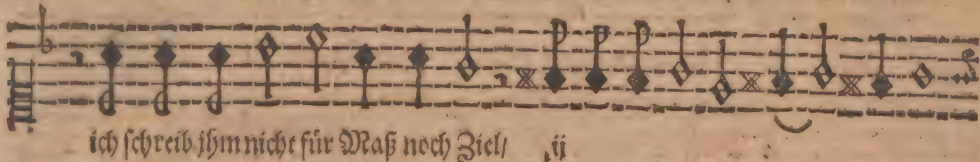 ich schreib jhm nicht für Maß noch Ziel/ ij